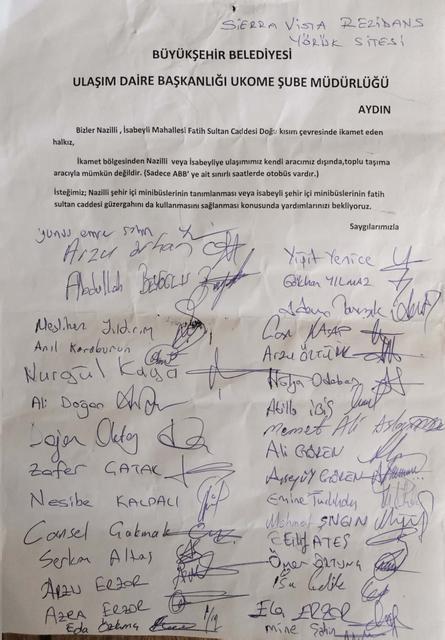 SIERRA VISTA REZİDANS
YÖRÜK SİTESİ
BÜYÜKŞEHİR BELEDİYESİ
ULAŞIM DAİRE BAŞKANLIĞI UKOME ŞUBE MÜDÜRLÜĞÜ
AYDIN
Bizler Nazilli , İsabeyli Mahallesi Fatih Sultan Caddesi Doğu kısım çevresinde ikamet eden
halkız,
İkamet bölgesinden Nazilli veya İsabeyliye ulaşımımız kendi aracımız dışında,toplu taşıma
aracıyla mümkün değildir. (Sadece ABB' ye ait sınırlı saatlerde otobüs vardır.)
İsteğimiz; Nazilli şehir içi minibüslerinin tanımlanması veya isabeyli şehir içi minibüslerinin fatih
sultan caddesi güzergahını da kullanmasını sağlanması konusunda yardımlarınızı bekliyoruz.
Saygılarımızla
yunus emre
Arzu orhan
Abdullah
Meslihan Yıldırım
Anıl Karaburun
Nurgül
Ali Doğan
Oktay
Zafer ÇATAK
Nesibe KALPALI
Cansel Gökmak
Serkan Aktaş
Arzu ERZOR
AZRA ERZOR
Eda
Yiğit Yenice
Gökhan YILMAZ
Can KASAP
Arzu ÖZTÜRK
Hülya Odabaş
Atilla İBİŞ
Memet Ali
Ali GÖLEN
Ayşegül GÖLEN
Emine
Mehmet ENGİN
ELİF ATEŞ
Ömer
ELA ERZOR
mine Şahin